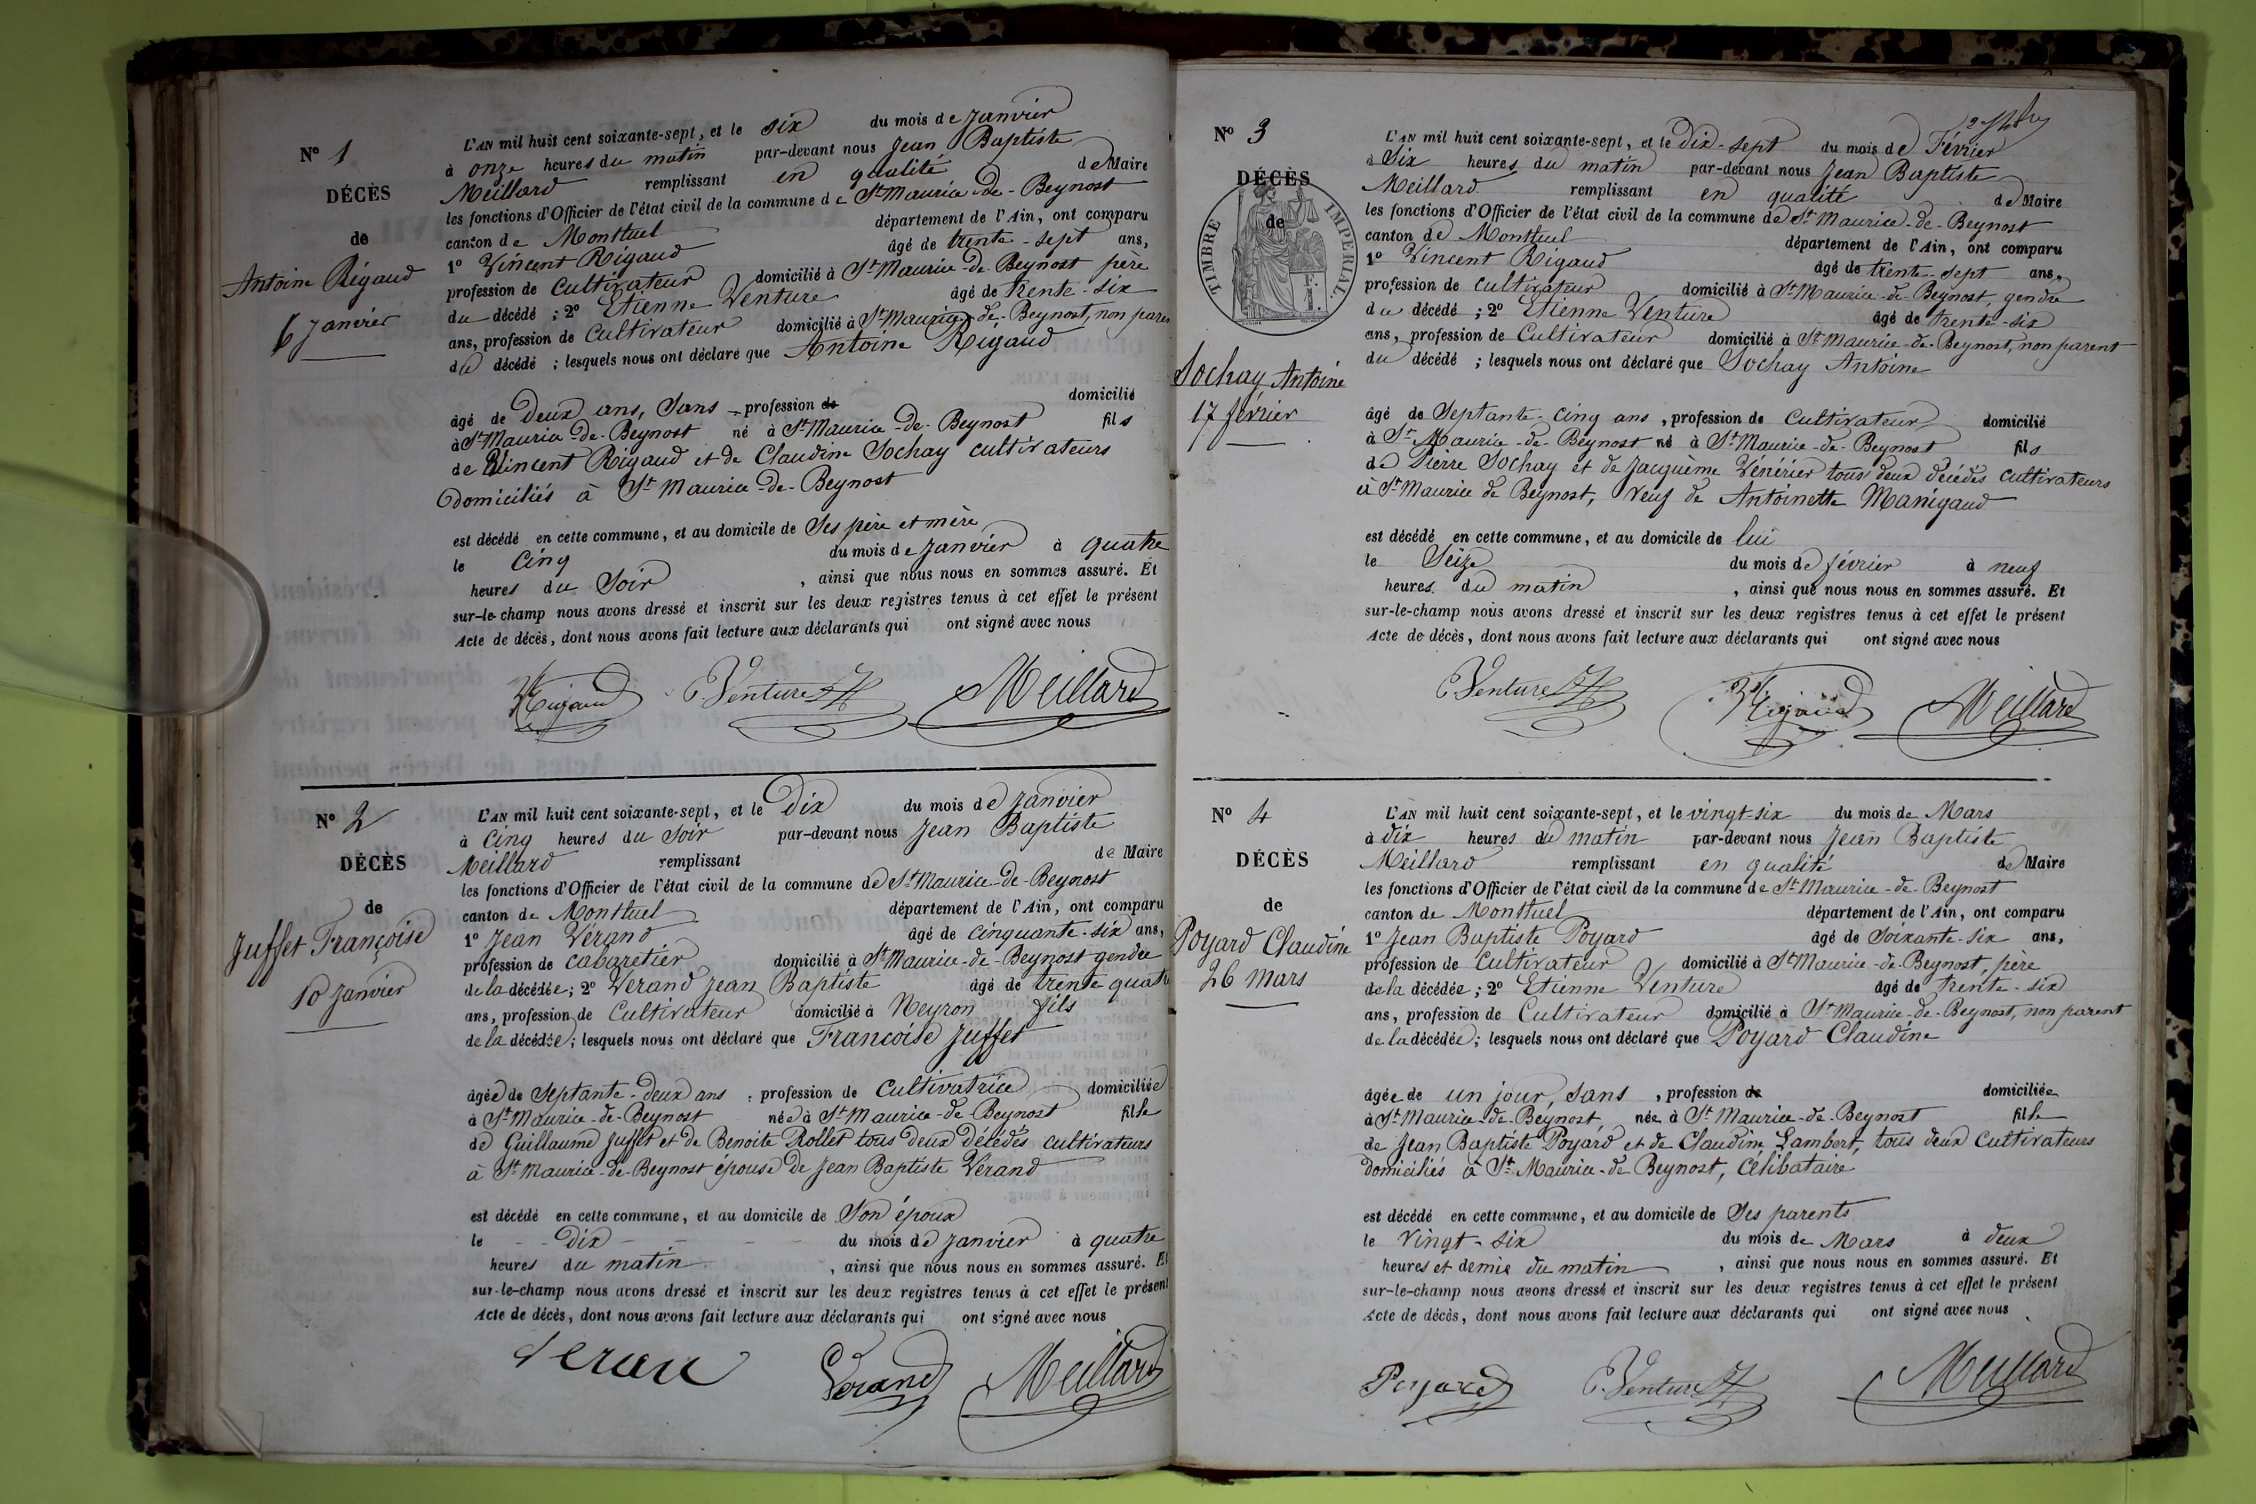 N° 1
DÉCÈS
de
Antoine Rigaud
6 janvier
L'AN mil huit cent soixante-sept, et le six du mois de janvier
à onze heures du matin par-devant nous Jean Baptiste
Meillard remplissant en qualité de Maire
les fonctions d'Officier de l'état civil de la commune de St Maurice-de-Beynost
canton de Montluel département de l'Ain, ont comparu
1° Vincent Rigaud âgé de trente-sept ans,
profession de cultivateur domicilié à St Maurice-de-Beynost père
du décédé ; 2° Etienne Venture âgé de trente-six
ans, profession de cultivateur domicilié à St Maurice-de-Beynost, non parent
du décédé ; lesquels nous ont déclaré que Antoine Rigaud
âgé de deux ans, sans profession de domicilié
à St Maurice-de-Beynost né à St Maurice-de-Beynost fils
de Vincent Rigaud et de Claudine Sochay cultivateurs
domiciliés à St Maurice-de-Beynost
est décédé en cette commune, et au domicile de ses père et mère
le cinq du mois de janvier à quatre
heures du soir , ainsi que nous nous en sommes assuré. Et
sur-le-champ nous avons dressé et inscrit sur les deux registres tenus à cet effet le présent
Acte de décès, dont nous avons fait lecture aux déclarants qui ont signé avec nous
Rigaud E. Venture Meillard
N° 2
DÉCÈS
de
Juffet Françoise
10 janvier
L'AN mil huit cent soixante-sept, et le dix du mois de janvier
à cinq heures du soir par-devant nous Jean Baptiste
Meillard remplissant de Maire
les fonctions d'Officier de l'état civil de la commune de St Maurice-de-Beynost
canton de Montluel département de l'Ain, ont comparu
1° Jean Vérand âgé de cinquante-six ans,
profession de cabaretier domicilié à St Maurice-de-Beynost gendre
de la décédée ; 2° Verand Jean Baptiste âgé de trente quatre
ans, profession de cultivateur domicilié à Neyron fils
de la décédée ; lesquels nous ont déclaré que Francoise Juffet
âgée de septante-deux ans , profession de cultivatrice domiciliée
à St Maurice-de-Beynost née à St Maurice-de-Beynost fille
de Guillaume Juffet et de Benoite Rollet tous deux décédés cultivateurs
à St Maurice-de-Beynost épouse de Jean Baptiste Vérand
est décédé en cette commune, et au domicile de son époux
le dix du mois de janvier à quatre
heures du matin , ainsi que nous nous en sommes assuré. Et
sur-le-champ nous avons dressé et inscrit sur les deux registres tenus à cet effet le présent
Acte de décès, dont nous avons fait lecture aux déclarants qui ont signé avec nous
Verand Meillard
N° 3
DÉCÈS
de
TIMBRE IMPÉRIAL
Sochay Antoine
17 février
L'AN mil huit cent soixante-sept, et le dix-sept du mois de Février
à six heures du matin par-devant nous Jean Baptiste
Meillard remplissant en qualité de Maire
les fonctions d'Officier de l'état civil de la commune de St Maurice-de-Beynost
canton de Montluel département de l'Ain, ont comparu
1° Vincent Rigaud âgé de trente-sept ans,
profession de cultivateur domicilié à St Maurice-de-Beynost, gendre
du décédé ; 2° Etienne Venture âgé de trente-six
ans, profession de cultivateur domicilié à St Maurice-de-Beynost, non parent
du décédé ; lesquels nous ont déclaré que Sochay Antoine
âgé de septante-cinq ans , profession de cultivateur domicilié
à St Maurice-de-Beynost né à St Maurice-de-Beynost fils
de Pierre Sochay et de Jacquème Vénérier tous deux décédés cultivateurs
à St Maurice de Beynost, veuf de Antoinette Manigaud
est décédé en cette commune, et au domicile de lui
le seize du mois de février à neuf
heures du matin , ainsi que nous nous en sommes assuré. Et
sur-le-champ nous avons dressé et inscrit sur les deux registres tenus à cet effet le présent
Acte de décès, dont nous avons fait lecture aux déclarants qui ont signé avec nous
E. Venture Rigaud Meillard
N° 4
DÉCÈS
de
Poyard Claudine
26 mars
L'AN mil huit cent soixante-sept, et le vingt-six du mois de Mars
à dix heures du matin par-devant nous Jean Baptiste
Meillard remplissant en qualité de Maire
les fonctions d'Officier de l'état civil de la commune de St Maurice-de-Beynost
canton de Montluel département de l'Ain, ont comparu
1° Jean Baptiste Poyard âgé de soixante-six ans,
profession de cultivateur domicilié à St Maurice-de-Beynost, père
de la décédée ; 2° Etienne Venture âgé de trente-six
ans, profession de cultivateur domicilié à St Maurice-de-Beynost, non parent
de la décédée ; lesquels nous ont déclaré que Poyard Claudine
âgée de un jour, sans , profession de domiciliée
à St Maurice-de-Beynost, née à St Maurice-de-Beynost fille
de Jean Baptiste Poyard et de Claudine Lambert, tous deux cultivateurs
domiciliés à St Maurice-de-Beynost, célibataire
est décédé en cette commune, et au domicile de ses parents
le vingt-six du mois de Mars à deux
heures et demie du matin , ainsi que nous nous en sommes assuré. Et
sur-le-champ nous avons dressé et inscrit sur les deux registres tenus à cet effet le présent
Acte de décès, dont nous avons fait lecture aux déclarants qui ont signé avec nous
Poyard E. Venture Meillard